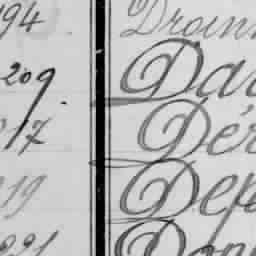 94 Droin
209. Da
217 Dér
219 Dep
221 Don